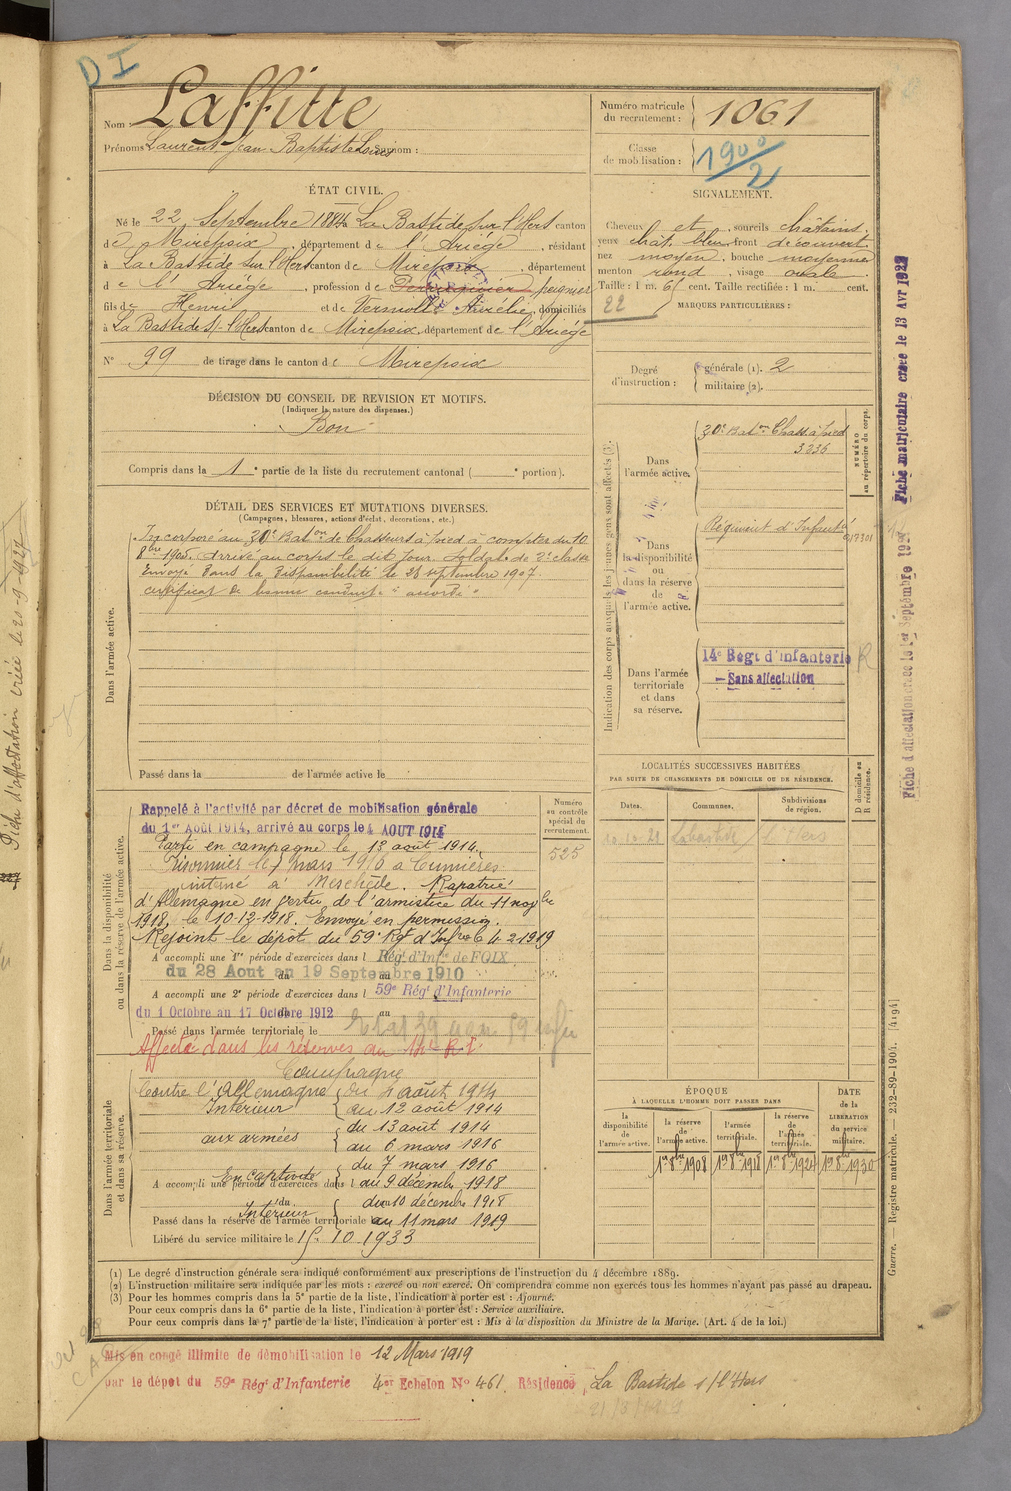 DI
Nom : Laffitte
Prénoms Laurent Jean Baptiste Louis Surnom :
Numéro matricule du recrutement : 1061
Classe de mobilisation : 1900/2
ÉTAT CIVIL.
Né le 22 Septembre 1884 à La Bastide sur l'Hers canton
d e Mirepoix, département de l'Ariége, résidant
à La Bastide sur l'Hers canton de Mirepoix, département
d e l'Ariége, profession de Perruquier peignier
fils de Henri et de Vernioll Aurélie, domiciliés
à La Bastide s/ l'Hers canton de Mirepoix, département de l'Ariége
N° 99 de tirage dans le canton de Mirepoix
SIGNALEMENT.
Cheveux et sourcils châtains,
yeux chât. bleu front découvert
nez moyen, bouche moyenne
menton rond, visage ovale.
Taille : 1 m. 61 cent. Taille rectifiée : 1 m. cent.
22 MARQUES PARTICULIÈRES :
Degré d'instruction : générale (1). 2
militaire (2).
DÉCISION DU CONSEIL DE REVISION ET MOTIFS.
(Indiquer la nature des dispenses.)
Bon
Compris dans la 1e partie de la liste du recrutement cantonal ( e portion).
DÉTAIL DES SERVICES ET MUTATIONS DIVERSES.
(Campagnes, blessures, actions d'éclat, décorations, etc.)
Dans l'armée active.
Incorporé au 30e Baton de Chasseurs à pied à compter du 10
8bre 1905. Arrivé au corps le dit jour. Soldat de 2e classe
Envoyé dans la disponibilité le 28 septembre 1907.
certificat de bonne conduite "accordé"
Passé dans la de l'armée active le
Indication des corps auxquels les jeunes gens sont affectés (3).
NUMÉRO au répertoire du corps.
Dans l'armée active.
30e Baton Chass. à pied
3236
Dans la disponibilité ou dans la réserve de l'armée active.
Régiment d'Infanté
Dans l'armée territoriale et dans sa réserve.
14e Regt d'infanterie R
- Sans affectation
LOCALITÉS SUCCESSIVES HABITÉES
PAR SUITE DE CHANGEMENTS DE DOMICILE OU DE RÉSIDENCE.
Dates. Communes. Subdivisions de région. D domicile ou R résidence.
Labastide l'Hers
Dans la disponibilité ou dans la réserve de l'armée active.
Numéro au contrôle spécial du recrutement.
525
Rappelé à l'activité par décret de mobilisation générale
du 1er Août 1914, arrivé au corps le 4 AOUT 1914
Parti en campagne le 13 août 1914.
Prisonnier le 7 mars 1916 à Cumières
interné à Meschède. Rapatrié
d'Allemagne en vertu de l'armistice du 11 novbre
1918, le 10-12-1918. Envoyé en permission.
Rejoint le dépôt du 59e Rgt d'Infrie le 4 2-1919
A accompli une 1re période d'exercices dans l Régt d'Infie de FOIX
du 28 Aout au 19 Septembre 1910
A accompli une 2e période d'exercices dans l 59e Régt d'Infanterie
du 1 Octobre au 17 Octobre 1912
Passé dans l'armée territoriale le
Affecté dans les réserves au 14e R.I.
Dans l'armée territoriale et dans sa réserve.
Campagne
Contre l'Allemagne du 4 août 1914
Intérieur au 12 août 1914
aux armées du 13 août 1914
au 6 mars 1916
En captivité du 7 mars 1916
A accompli une période d'exercices dans l au 9 décembre 1918
Intérieur du 10 décembre 1918
Passé dans la réserve de l'armée territoriale le au 11 mars 1919
Libéré du service militaire le 15 10 1933
ÉPOQUE
À LAQUELLE L'HOMME DOIT PASSER DANS
DATE de la LIBÉRATION du service militaire.
la disponibilité de l'armée active.
la réserve de l'armée active.
l'armée territoriale.
la réserve de l'armée territoriale.
1er 8bre 1908 1er 8bre 1918 1er 8bre 1924 1er 8bre 1930
(1) Le degré d'instruction générale sera indiqué conformément aux prescriptions de l'instruction du 4 décembre 1889.
(2) L'instruction militaire sera indiquée par les mots : exercé ou non exercé. On comprendra comme non exercés tous les hommes n'ayant pas passé au drapeau.
(3) Pour les hommes compris dans la 5e partie de la liste, l'indication à porter est : Ajourné.
Pour ceux compris dans la 6e partie de la liste, l'indication à porter est : Service auxiliaire.
Pour ceux compris dans la 7e partie de la liste, l'indication à porter est : Mis à la disposition du Ministre de la Marine. (Art. 4 de la loi.)
Mis en congé illimité de démobilisation le 12 Mars 1919
par le dépôt du 59e Régt d'Infanterie 4er Echelon No 461. Résidence La Bastide s/l'Hers
Fiche matriculaire créée le 13 Avr 1922
Fiche d'affectation créée le 1er Septembre
Guerre. — Registre matricule. — 232-89-1904. [4194]
Fiche d'affectation créée le 20-9-1927